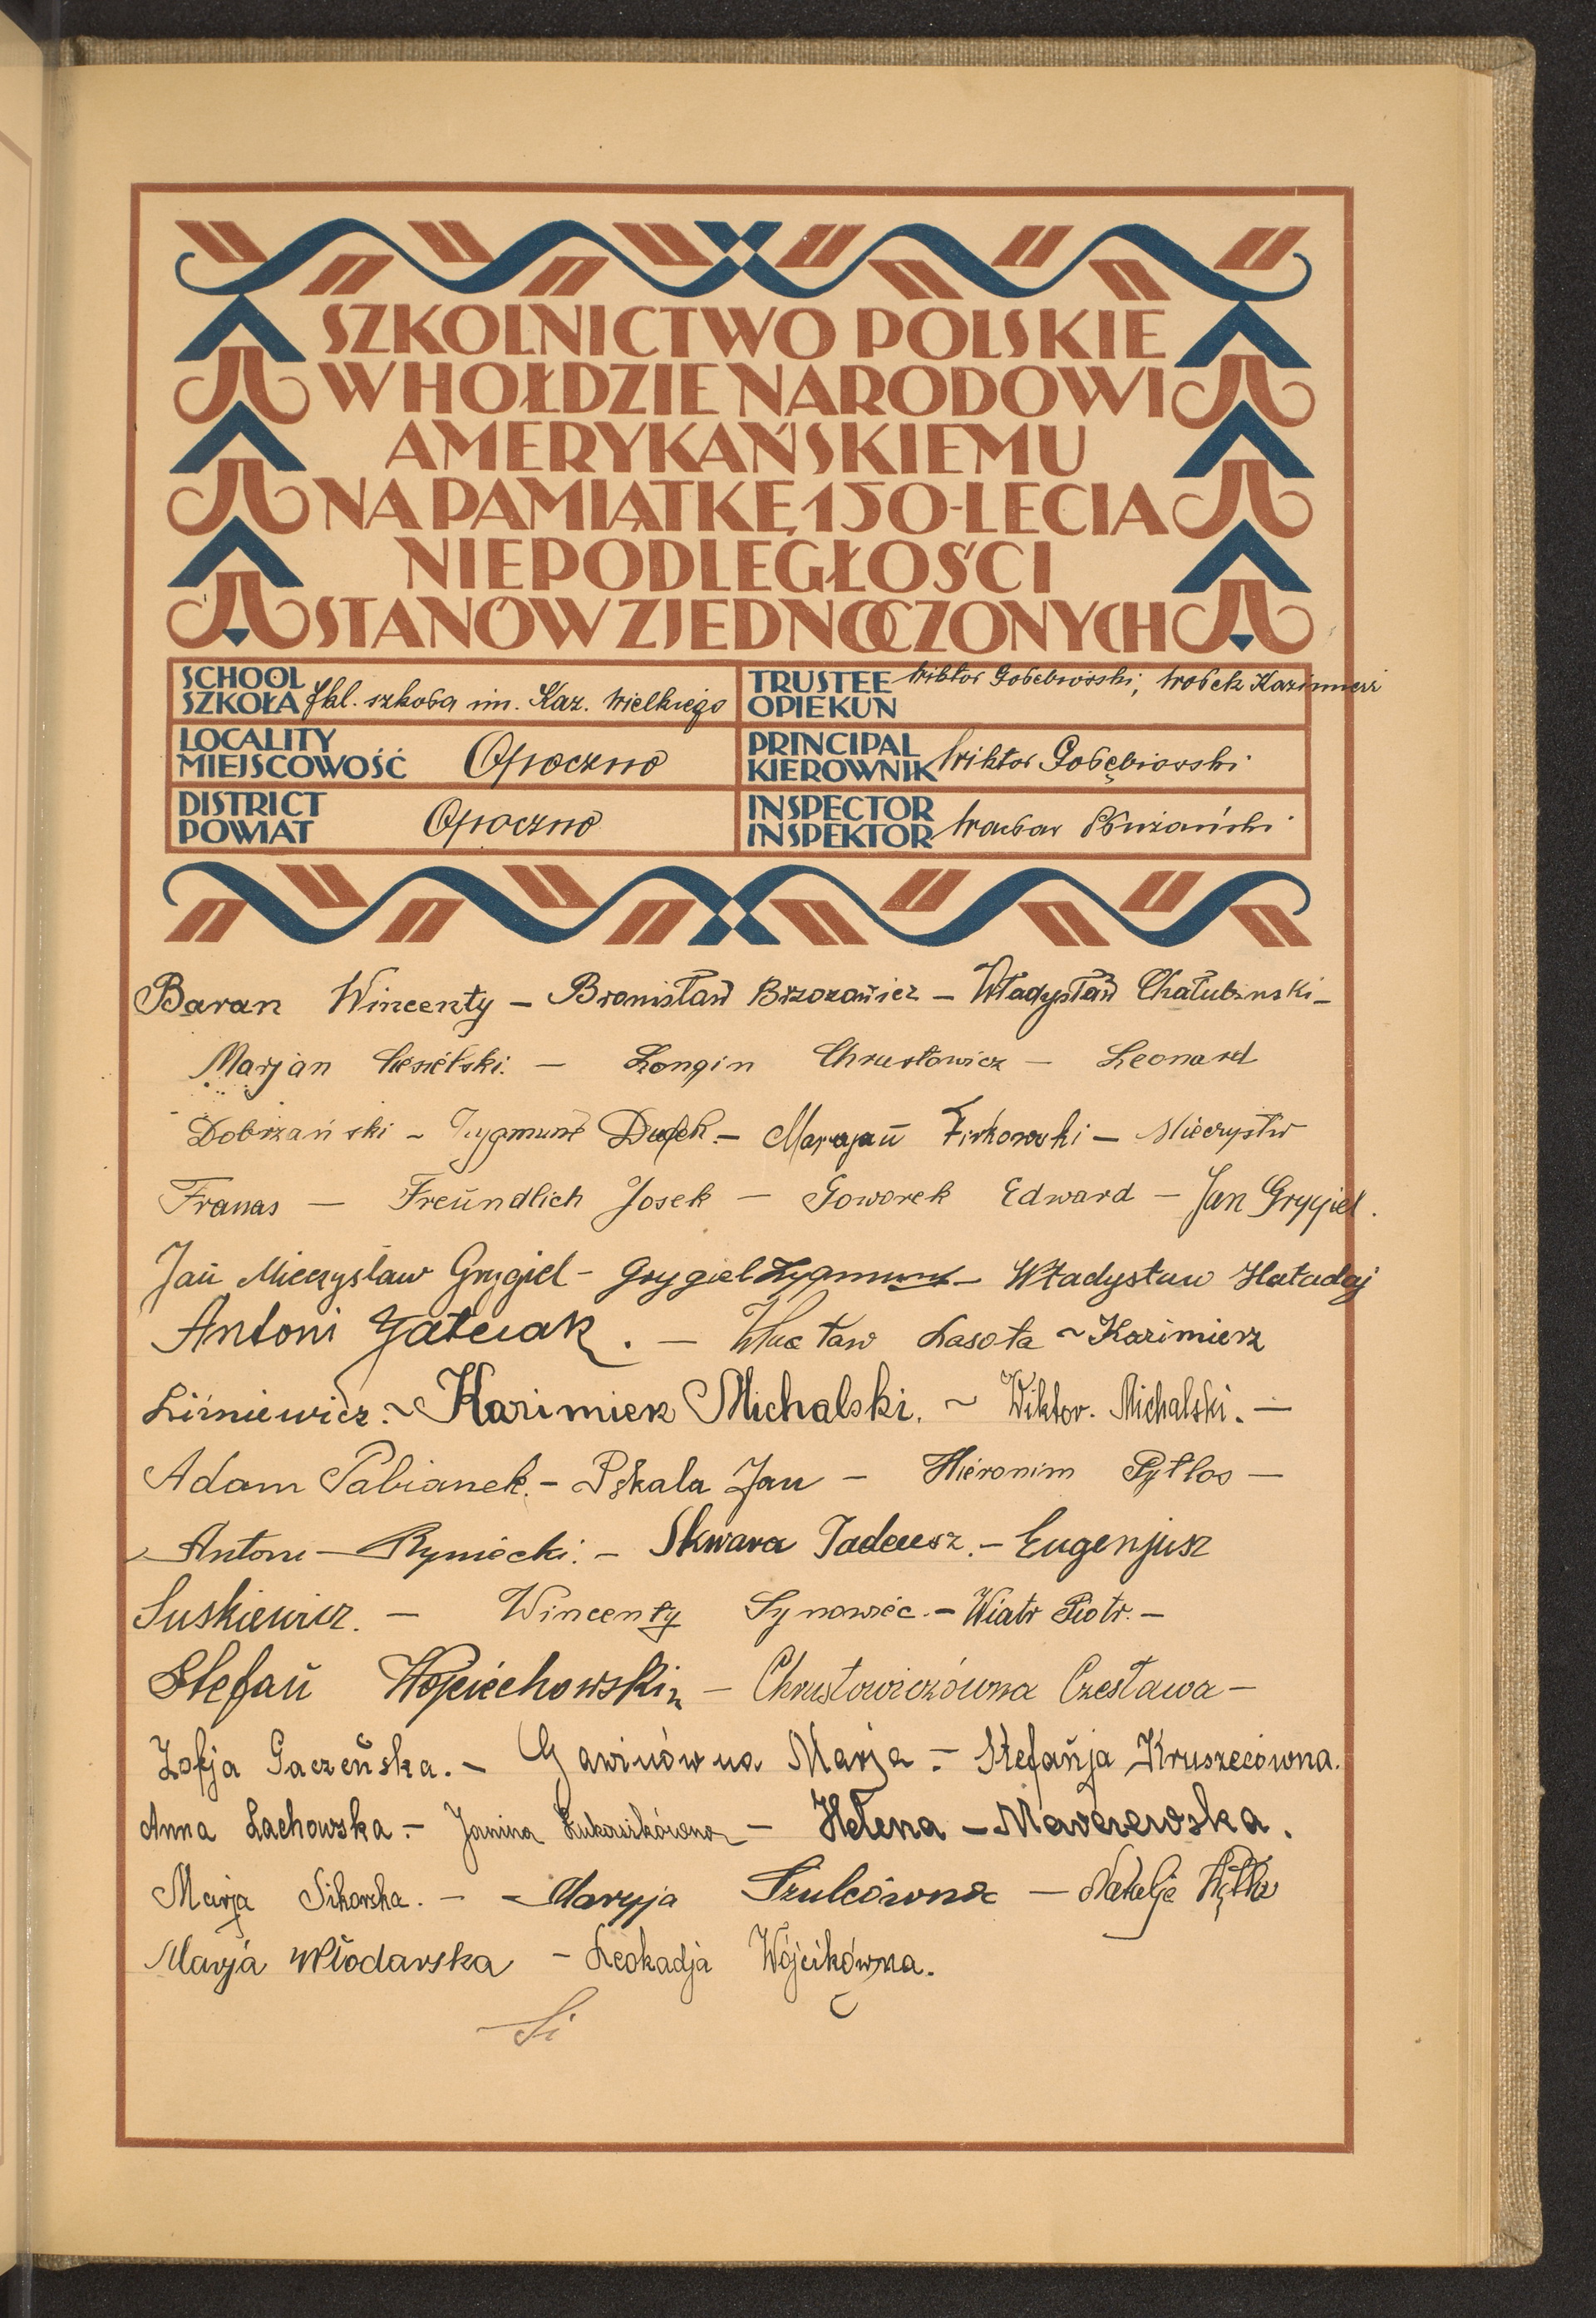 SZKOLNICTWO POLSKIE
W HOŁDZIE NARODOWI
AMERYKAŃSKIEMU
NA PAMIĄTKĘ 150-LECIA
NIEPODLEGŁOŚCI
STANÓW ZJEDNOCZONYCH
SCHOOL
SZKOŁA 7kl. szkoła im. Kaz. Wielkiego
TRUSTEE Wiktor Gołębiowski, Wołek Kazimierz
OPIEKUN
LOCALITY
MIEJSCOWOŚĆ Opoczno
PRINCIPAL
KIEROWNIK Wiktor Gołębiowski
DISTRICT
POWIAT Opoczno
INSPECTOR
INSPEKTOR Wacław Płużański
Baran Wincenty – Bronisław Brzozowicz – Władysław Chałubinski –
Marjan – Longin Chrustowicz – Leonard
Dobrzański ~ Zygmunt Dudek. – Marjan Firkowski – Mieczysław
Franas – Freundlich Josek – Goworek Edward – Jan Grygiel.
Jan Mieczysław Grygiel – Grygiel Zygmunt – Władysław Hataday
Antoni Jatczak. – Wacław Lasota ~ Kazimierz
Liśniewicz. ~ Kazimierz Michalski. ~ Wiktor. Michalski. –
Adam Pabianek. – Pękala Jan – Hieronim Pytlos –
Antoni – Ryniecki. – Skwara Tadeusz. – Eugenjusz
Suskiewicz. – Wincenty Synowiec. – Wiatr Piotr. –
Stefan Wojciechowski – Chrustowiczówna Czesława –
Zofja Gaczeńska. – Gawinówna Marja – Stefanja Kruszecówna.
Anna Lachowska. – Janina Łukasikówna – Helena – Maszewska.
Marja Sikorska. – – Maryja Szulcówna – Natalja
Marja Włodarska – Leokadja Wójcikówna.
Si